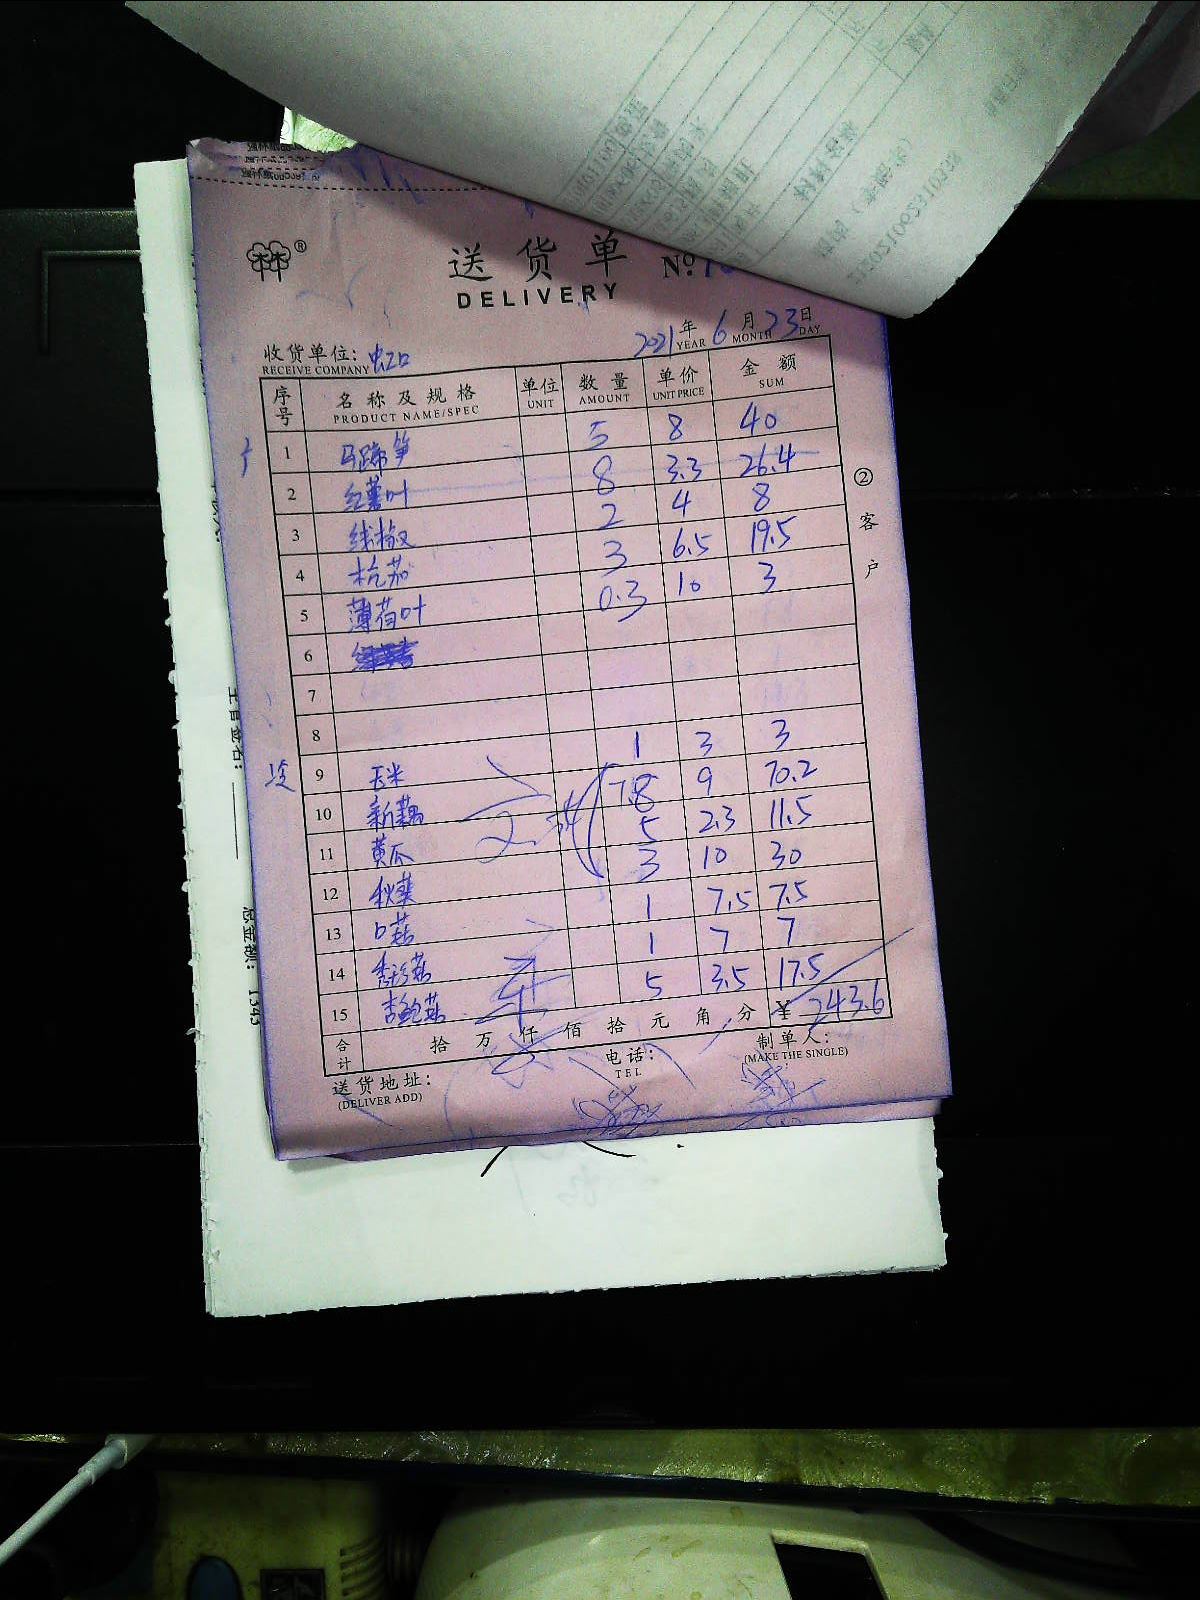 送货单 No.
DELIVERY
2021年 6月 23日
YEAR MONTH DAY
收货单位: 虹口
RECEIVE COMPANY
序号 名称及规格 单位 数量 单价 金额
PRODUCT NAME/SPEC UNIT AMOUNT UNIT PRICE SUM
1 马蹄笋 5 8 40
2 红薯叶 8 3.3 26.4
3 线椒 2 4 8
4 杭茄 3 6.5 19.5
5 薄荷叶 0.3 10 3
6
7
8
9 玉米 1 3 3
10 新藕 7.8 9 70.2
11 黄瓜 5 2.3 11.5
12 秋葵 3 10 30
13 口菇 1 7.5 7.5
14 秀珍菇 1 7 7
15 杏鲍菇 5 3.5 17.5
合计 拾 万 仟 佰 拾 元 角 分 ¥ 243.6
送货地址: 电话: 制单人:
(DELIVER ADD) TEL (MAKE THE SINGLE)
② 客户